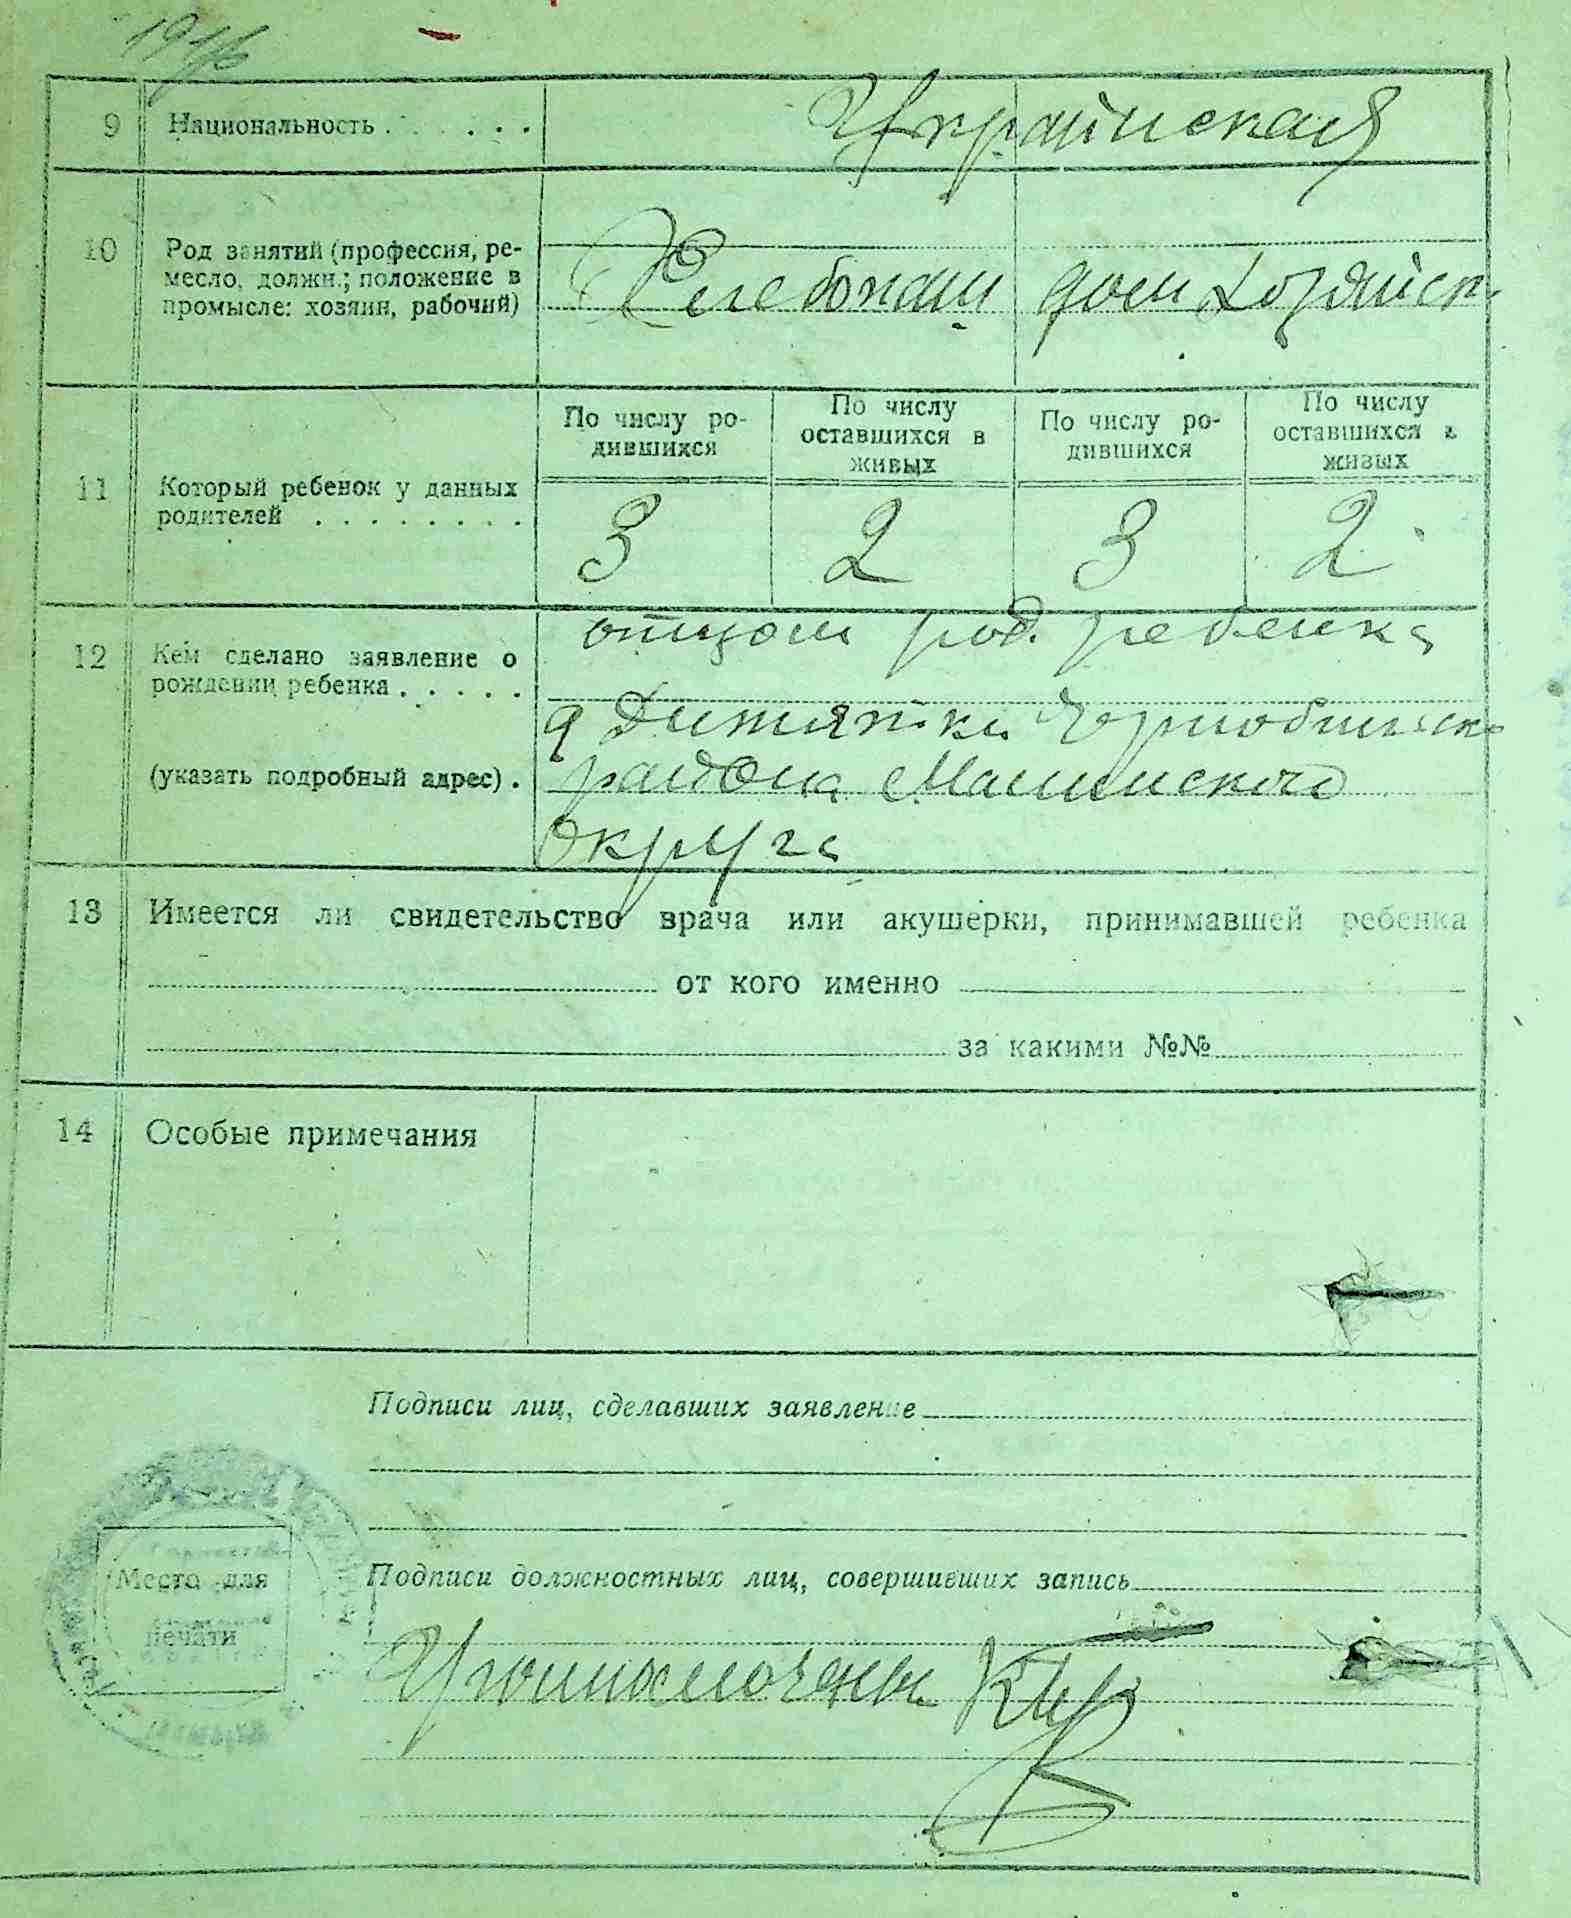 9 Национальность . . . . . . Украинская
10 Род занятий (профессия, ре-
месло, должн.; положение в
промысле: хозяин, рабочий)
Хлебопаш дом хозяйск.
По числу ро-
дившихся
По числу
оставшихся в
живых
По числу ро-
дившихся
По числу
оставшихся в
живых
11 Который ребенок у данных
родителей . . . . . . . .
3 2 3 2
12 Кем сделано заявление о
рождении ребенка . . . . .
(указать подробный адрес) .
отцом род. ребенка
д Дитятки Чорнобильск
района
округа
13 Имеется ли свидетельство врача или акушерки, принимавшей ребенка
от кого именно
за какими №№
14 Особые примечания
Подписи лиц, сделавших заявление
Подписи должностных лиц, совершивших запись
Место для
печати